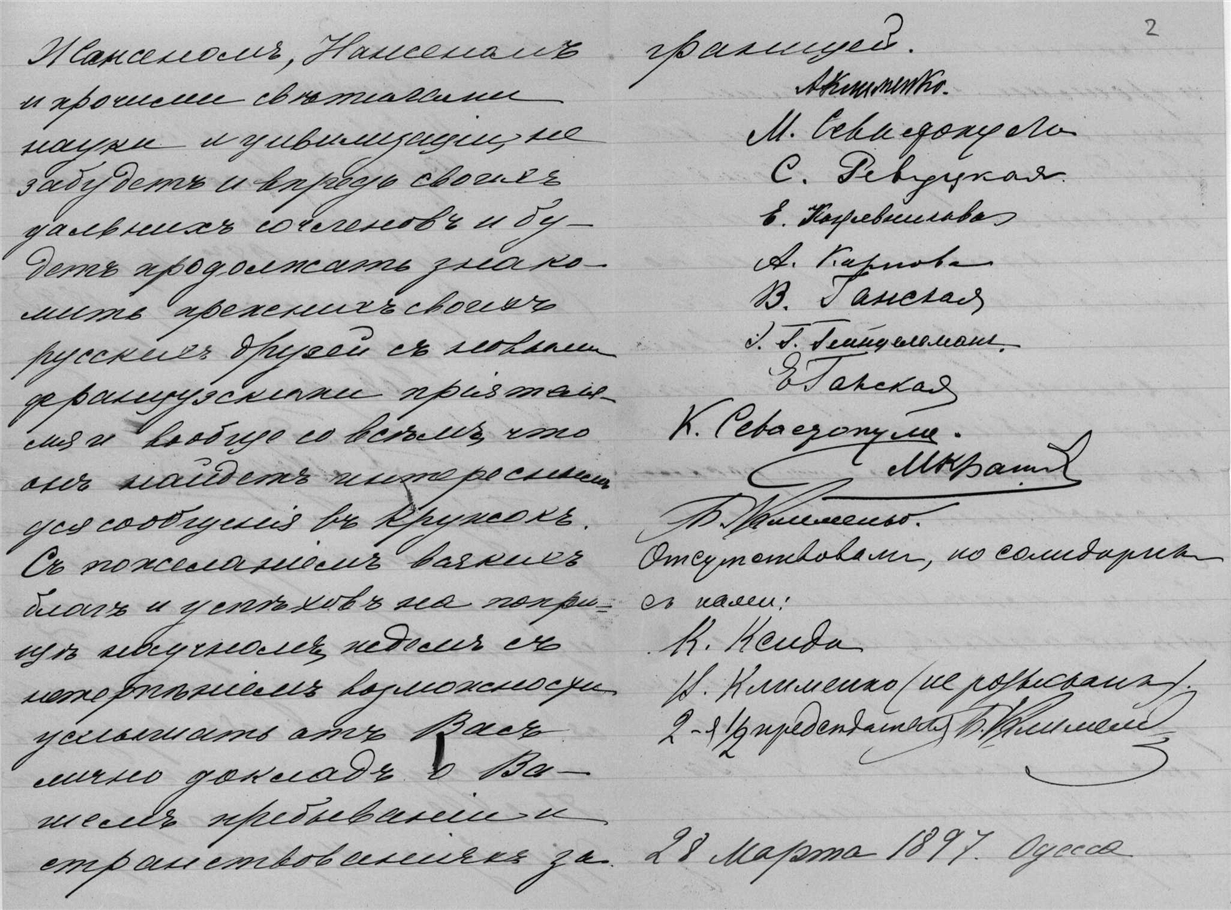 Жансеномъ, Нансеномъ
и прочими свѣтилами
науки и цивилизаціи, не
забудетъ и впредь своихъ
дальнихъ сочленовъ и бу-
детъ продолжать знако-
мить прежнихъ своихъ
русскихъ друзей съ новыми
французскими пріятеля-
ми и вообще со всѣмъ, что
онъ найдетъ интереснымъ
для сообщенія въ кружокъ.
Съ пожеланіемъ всякихъ
благъ и успѣховъ на попри-
щѣ научномъ, ждемъ съ
нетерпѣніемъ возможности
услышать отъ Васъ
лично докладъ о Ва-
шемъ пребываніи и
странствованіяхъ за
2
границей.
А Клименко.
М. Севастопуло
С. Ревуцкая.
Е. Кожевникова
А. Карпова
В. Ганская
Е Ганская
К. Севастопуло.
Б. Клименко.
Отсутствовали, но солидарны
съ нами:
К. Ксида
Клименко
2-я 1/2 председателя Б. Клименко
28 Марта 1897. Одесса